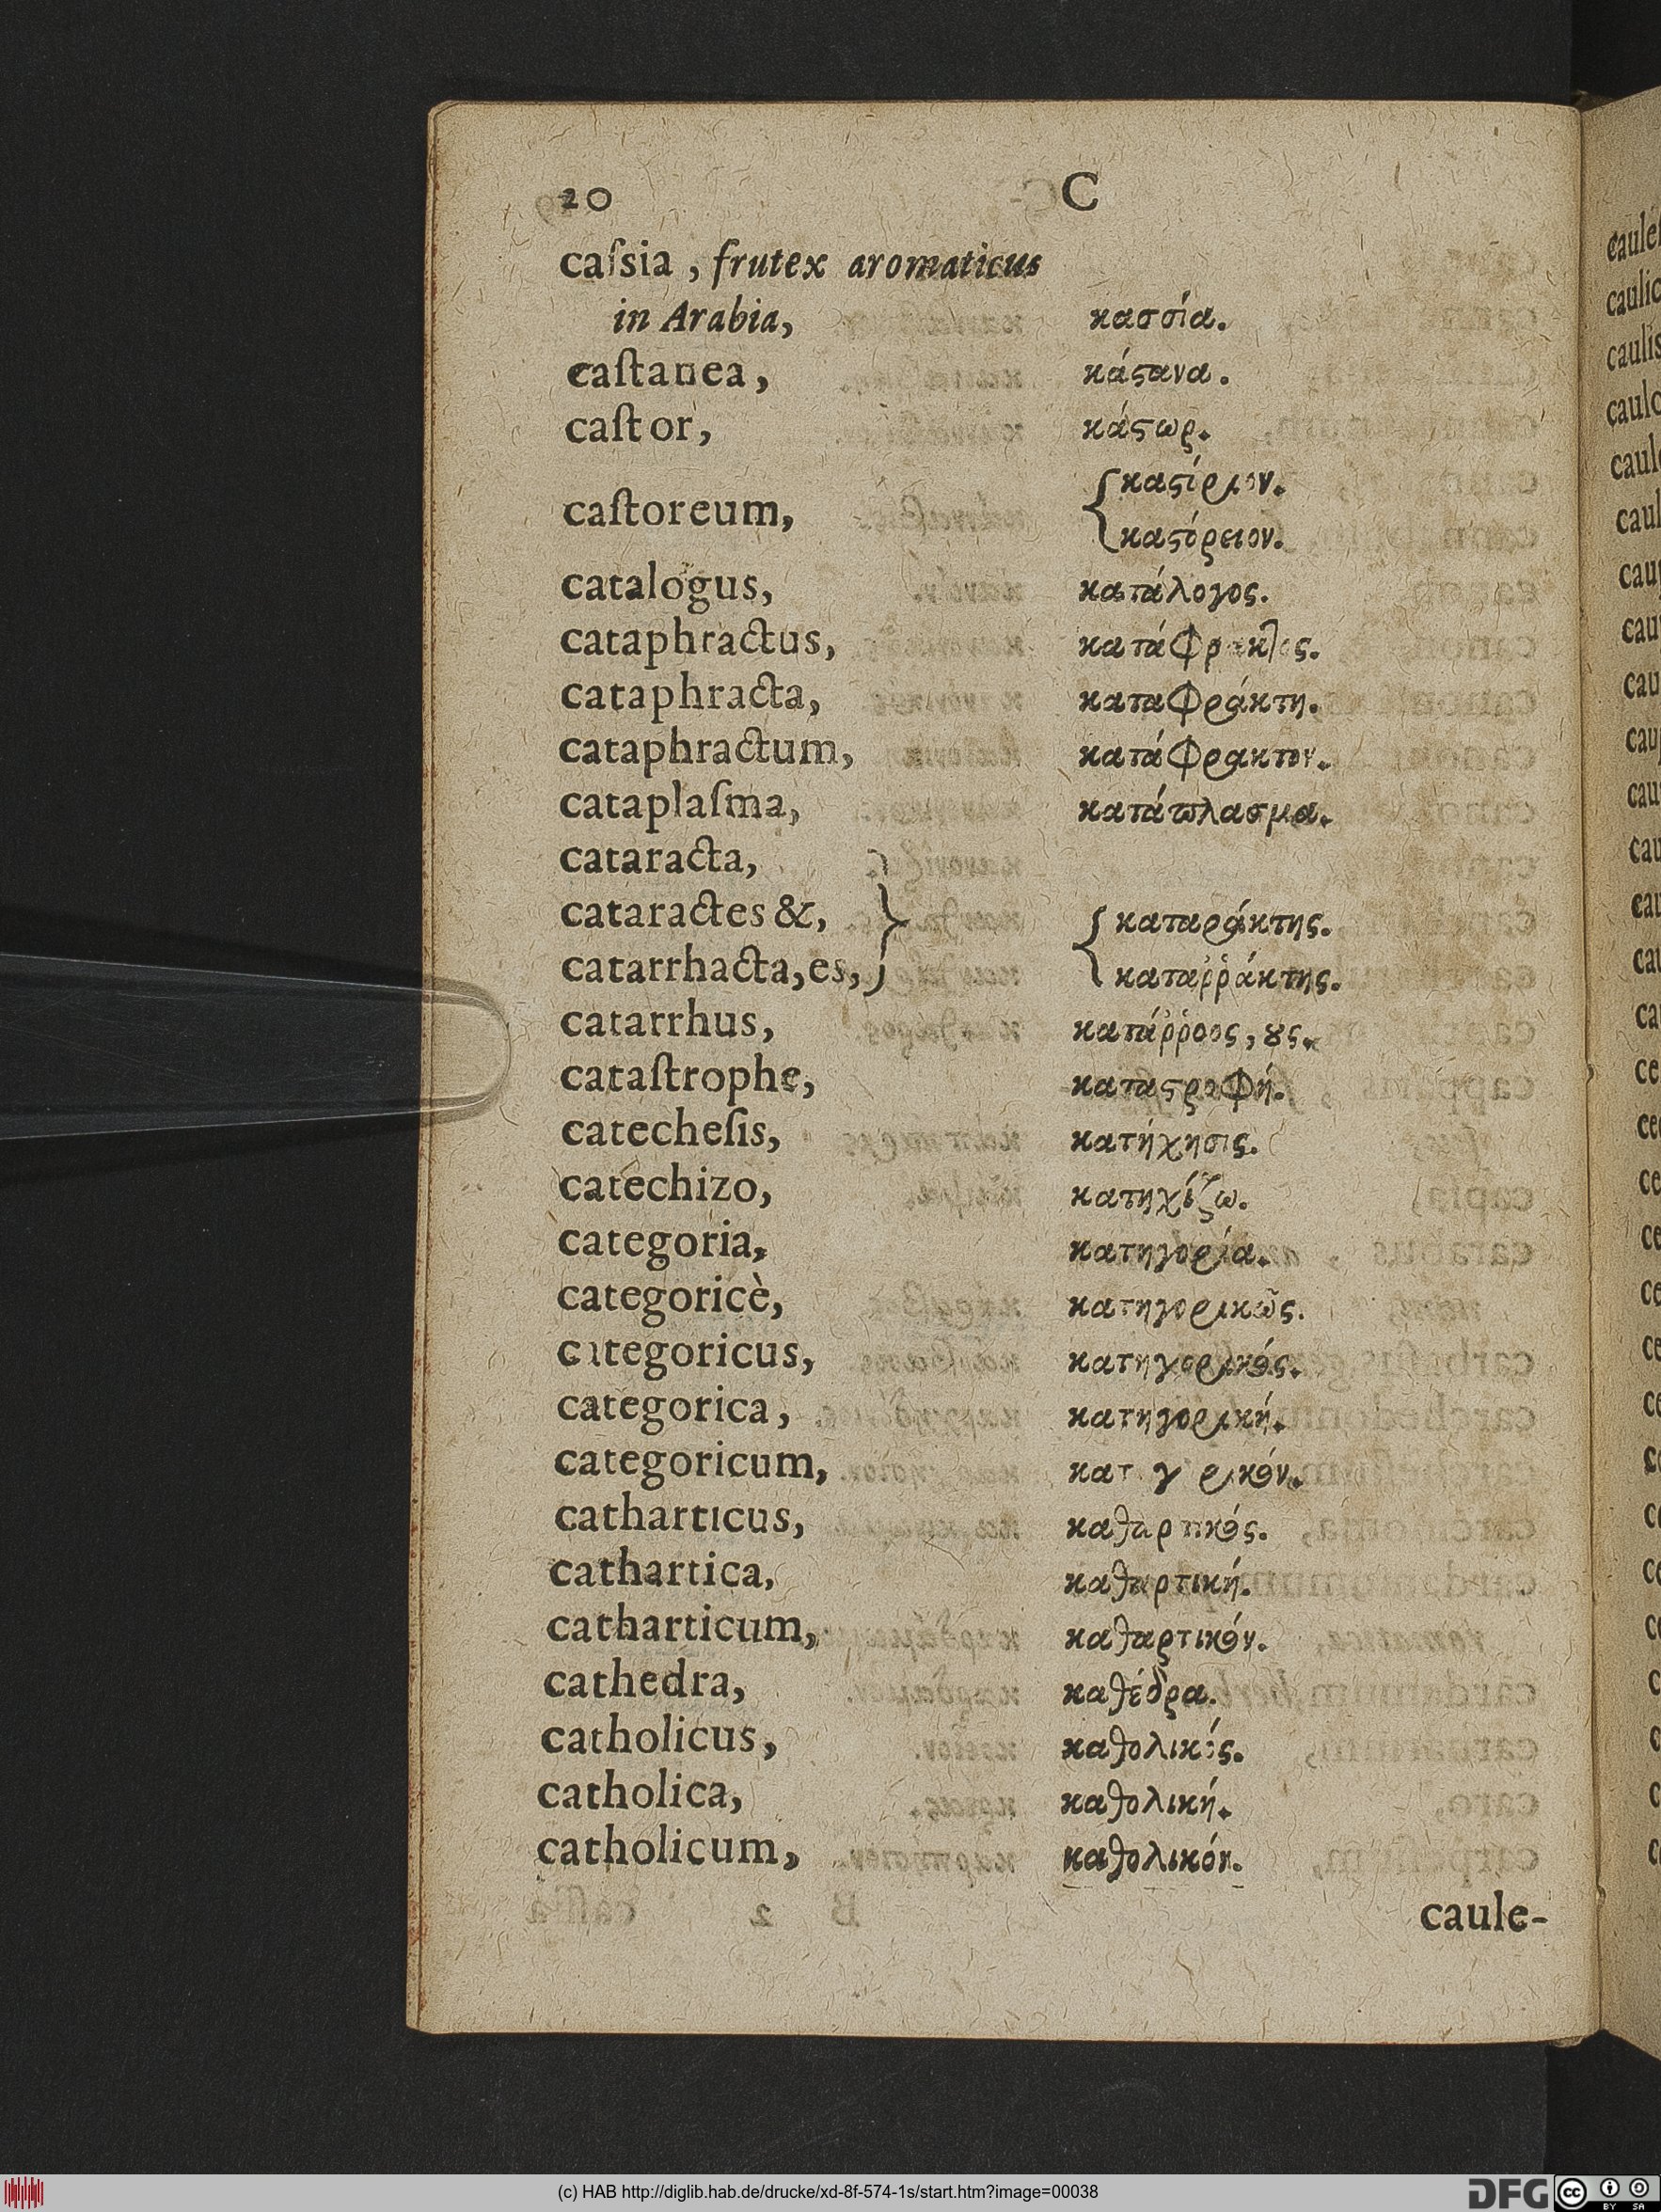 20 C
caſsia, frutex aromaticus
in Arabia, κασσία.
caſtanea, κάϛανα.
caſtor, κάϛωρ.
καϛόριον.
caſtoreum,
καϛόρειον.
catalogus, κατάλογος.
cataphractus, κατάφρακτος.
cataphracta, καταφράκτη.
cataphractum, κατάφρακτον.
cataplaſma, κατάπλασμα.
cataracta,
cataractes &, καταράκτης.
catarrhacta, es, καταῤῥάκτης.
catarrhus, κατάῤῥοος, ȣς.
cataſtrophe, καταϛροφή.
catecheſis, κατήχησις.
catechizo, κατηχίζω.
categoria, κατηγορία.
categoricè, κατηγορικῶς.
categoricus, κατηγορικός.
categorica, κατηγορική.
categoricum, κατηγορικόν.
catharticus, καθαρτικός.
cathartica, καθαρτική.
catharticum, καθαρτικόν.
cathedra, καθέδρα.
catholicus, καθολικός.
catholica, καθολική.
catholicum, καθολικόν.
caule-
(c) HAB http://diglib.hab.de/drucke/xd-8f-574-1s/start.htm?image=00038
DFG cc BY SA